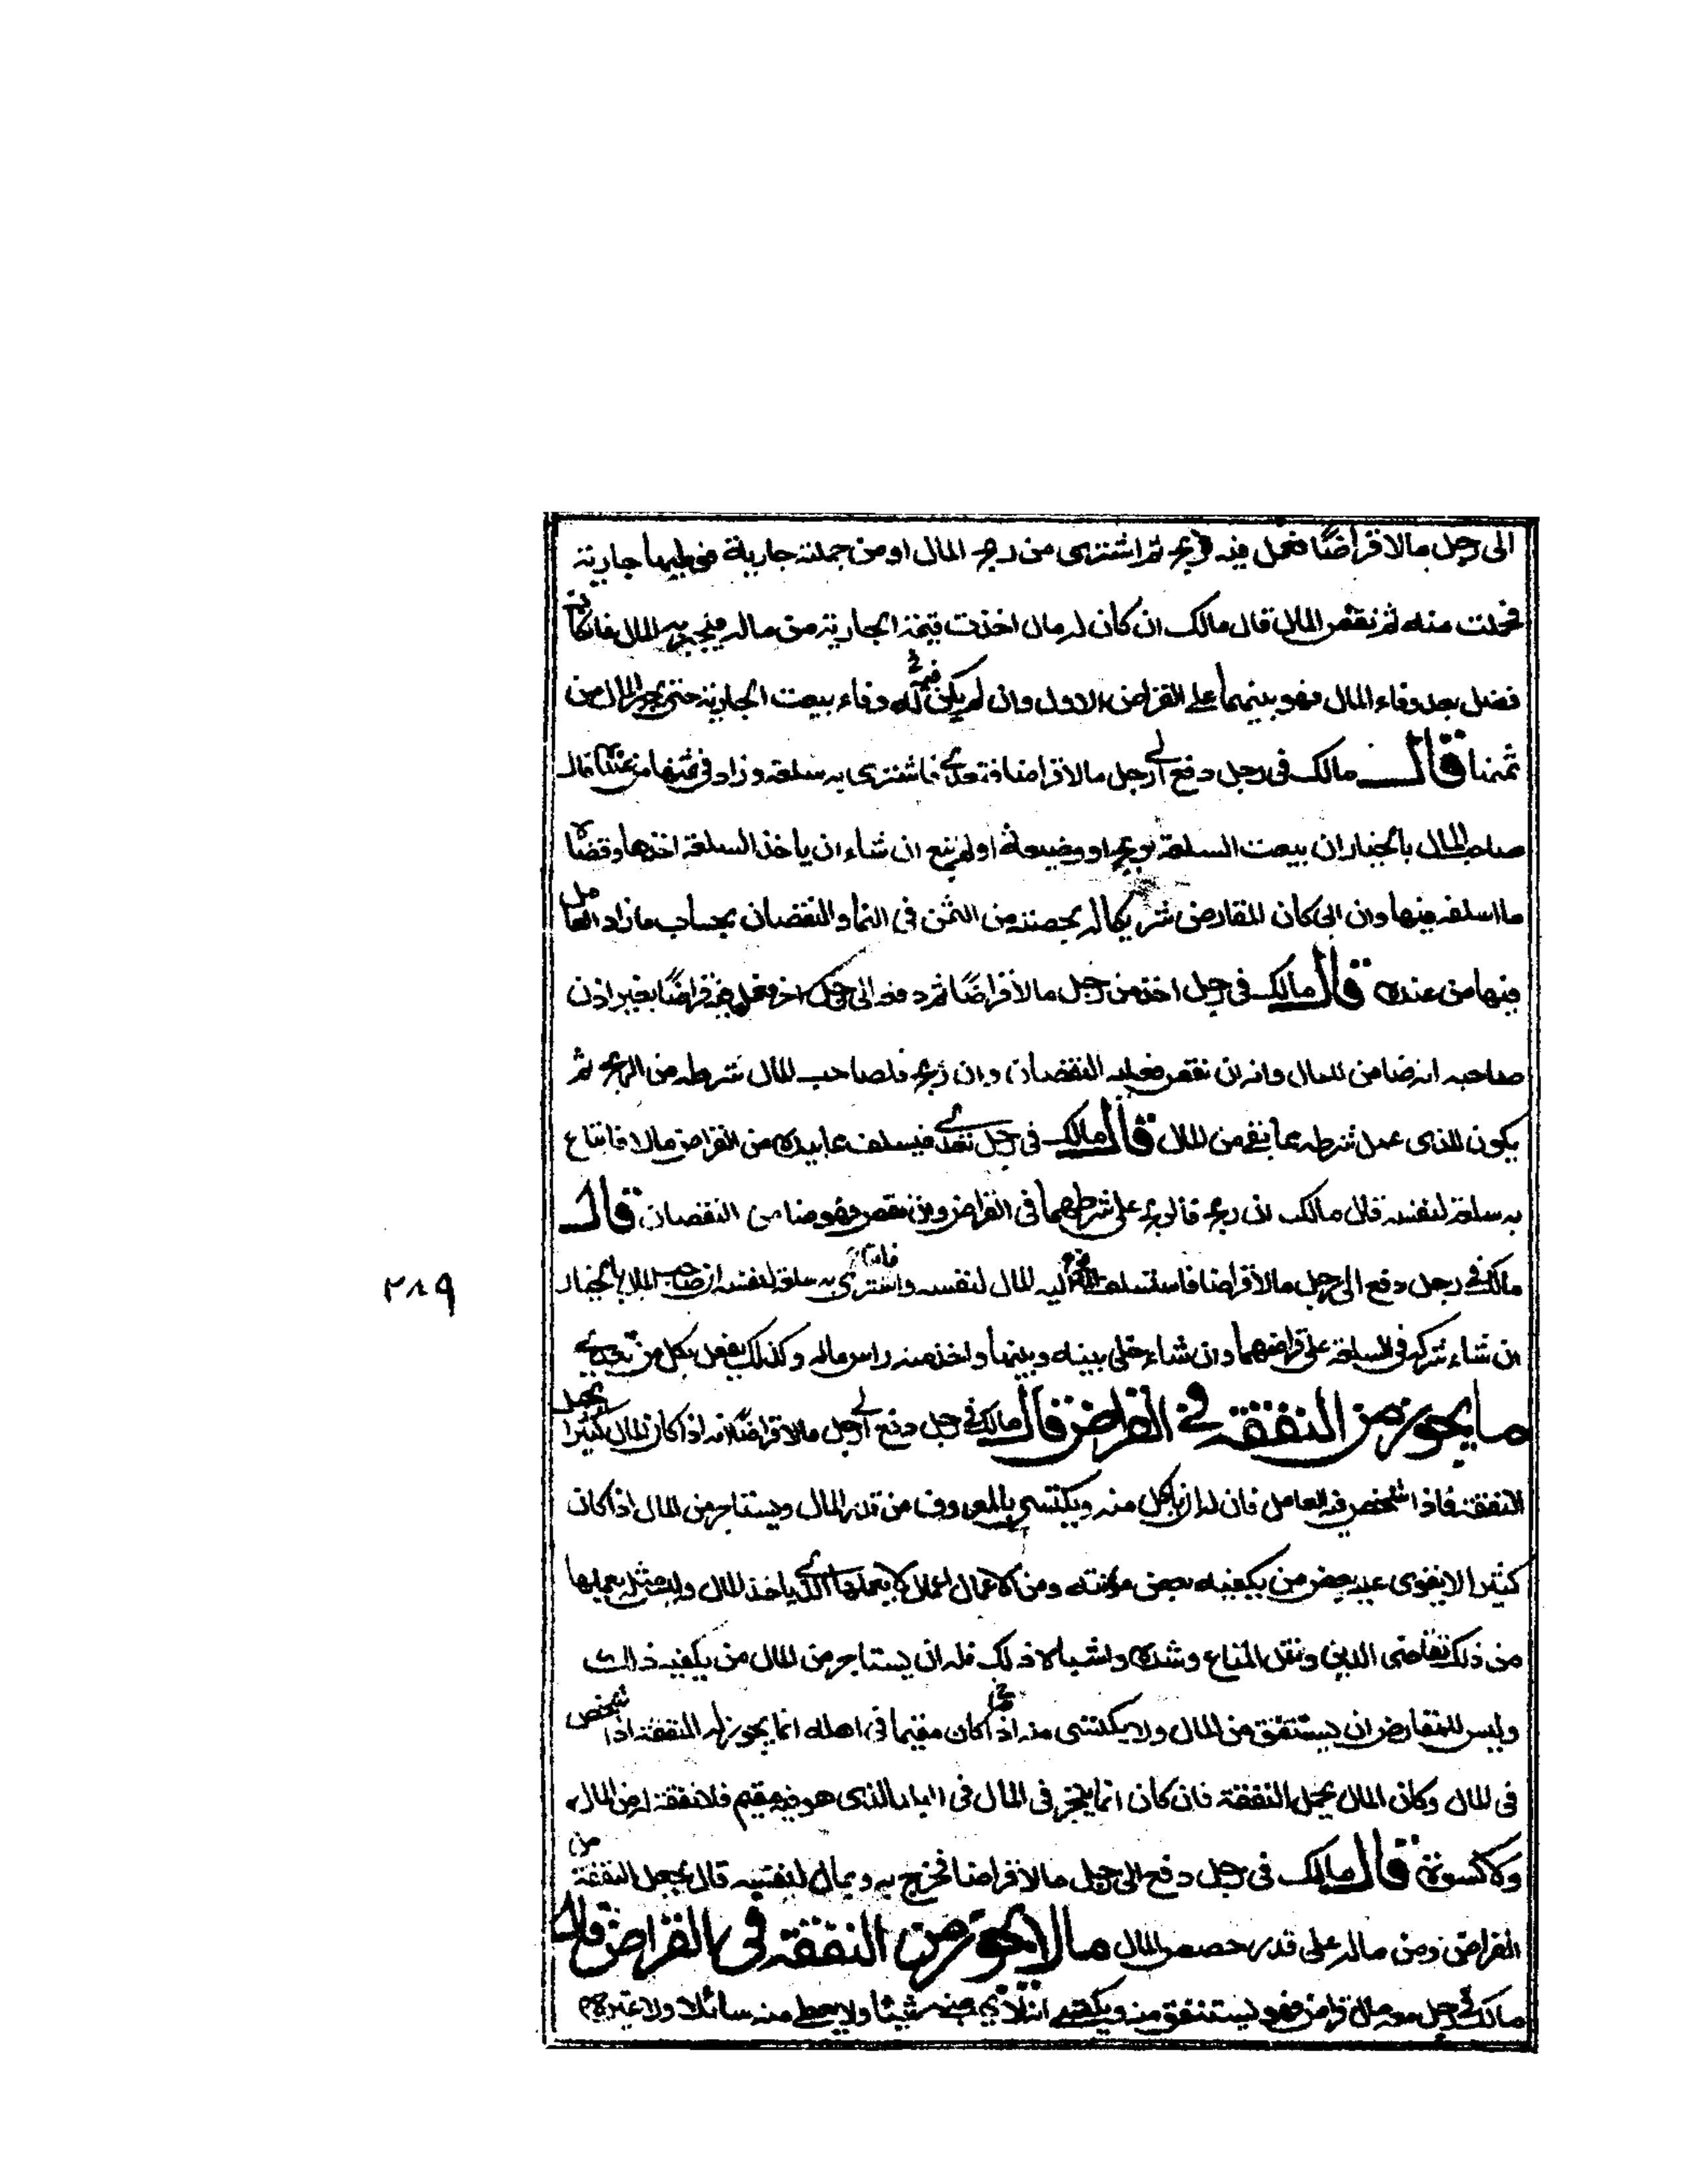 الى رجل مالا قراضًا فعمل فيه فربح ثم اشترى من ربح المال او من جملته جارية فوطيها جاريته
فحملت منه ثم نقص المال قال مالك ان كان له مال اخذت قيمة الجارية من ماله فيجبر به المال فان كان
فضل بعد وفاء المال فهو بينهما على القراض الاول وان لم يكن له وفاء بيعت الجارية حتى يجبر المال من
ثمنها قال مالك فى رجل دفع الى رجل مالا قراضا فتعدى فاشترى به سلعة وزاد فى ثمنها من عنده قال
صاحب المال بالخيار ان بيعت السلعة بربح او وضيعة او لم تبع ان شاء ان ياخذ السلعة اخذها وقضاه
ما اسلفه فيها وان ابى كان المقارض شريكا له بحصته من الثمن فى النما والنقصان بحساب ما زاد العامل
فيها من عنده قال مالك فى رجل اخذ من رجل مالا قراضًا ثم دفعه الى رجل اخر فعمل فيه قراضًا بغير اذن
صاحبه انه ضامن للمال وانه ان نقص فعليه النقصان وان ربح فلصاحب المال شرطه من الربح ثم
يكون للذى عمل شرطه بما بقى من المال قال مالك فى رجل تعدى فيسلف مما بيده من القراض مالا فابتاع
به سلعة لنفسه قال مالك ان ربح فالربح على شرطهما فى القراض وان نقص فهو ضامن النقصان قال
مالك فى رجل دفع الى رجل مالا قراضا فاستسلف اليه المال لنفسه واشترى به سلعة لنفسه ان صاحب المال بالخيار
ان شاء شركه فى السلعة على قراضهما وان شاء خلى بينه وبينها واخذ منه راس ماله وكذلك يفعل بكل من تعدى
ما يجوز من النفقة فى القراض قال مالك فى رجل دفع الى رجل مالا قراضًا انه اذا كان المال كثيرا يحمل
النفقة فاذا شخص فيه العامل فان له ان ياكل منه ويكتسى بالمعروف من قدر المال ويستاجر من المال اذا كان
كثيرا لا يقوى عليه بعض من يكفيه بعض مؤنته ومن الاعمال اعمال لا يعملها الذى ياخذ المال وليس مثله يعملها
من ذلك تقاضى الدين ونقل المتاع وشده واشباه ذلك فله ان يستاجر من المال من يكفيه ذلك
وليس للمقارض ان يستنفق من المال ولا يكتسى منه اذا كان مقيما فى اهله انما يجوز له النفقة اذا شخص
فى المال وكان المال يحمل النفقة فان كان انما يتجر فى المال فى البلد الذى هو فيه مقيم فلا نفقة له من المال
ولا كسوة قال مالك فى رجل دفع الى رجل مالا قراضا فخرج به وبمال لنفسه قال يجعل النفقة من
القراض ومن ماله على قدر حصص المال ما لا يجوز من النفقة فى القراض قال
مالك فى رجل معه مال قراض فهو يستنفق منه ويكتسى انه لا يهب منه شيئا ولا يعطى منه سائلا ولا غيره
٢٨٩